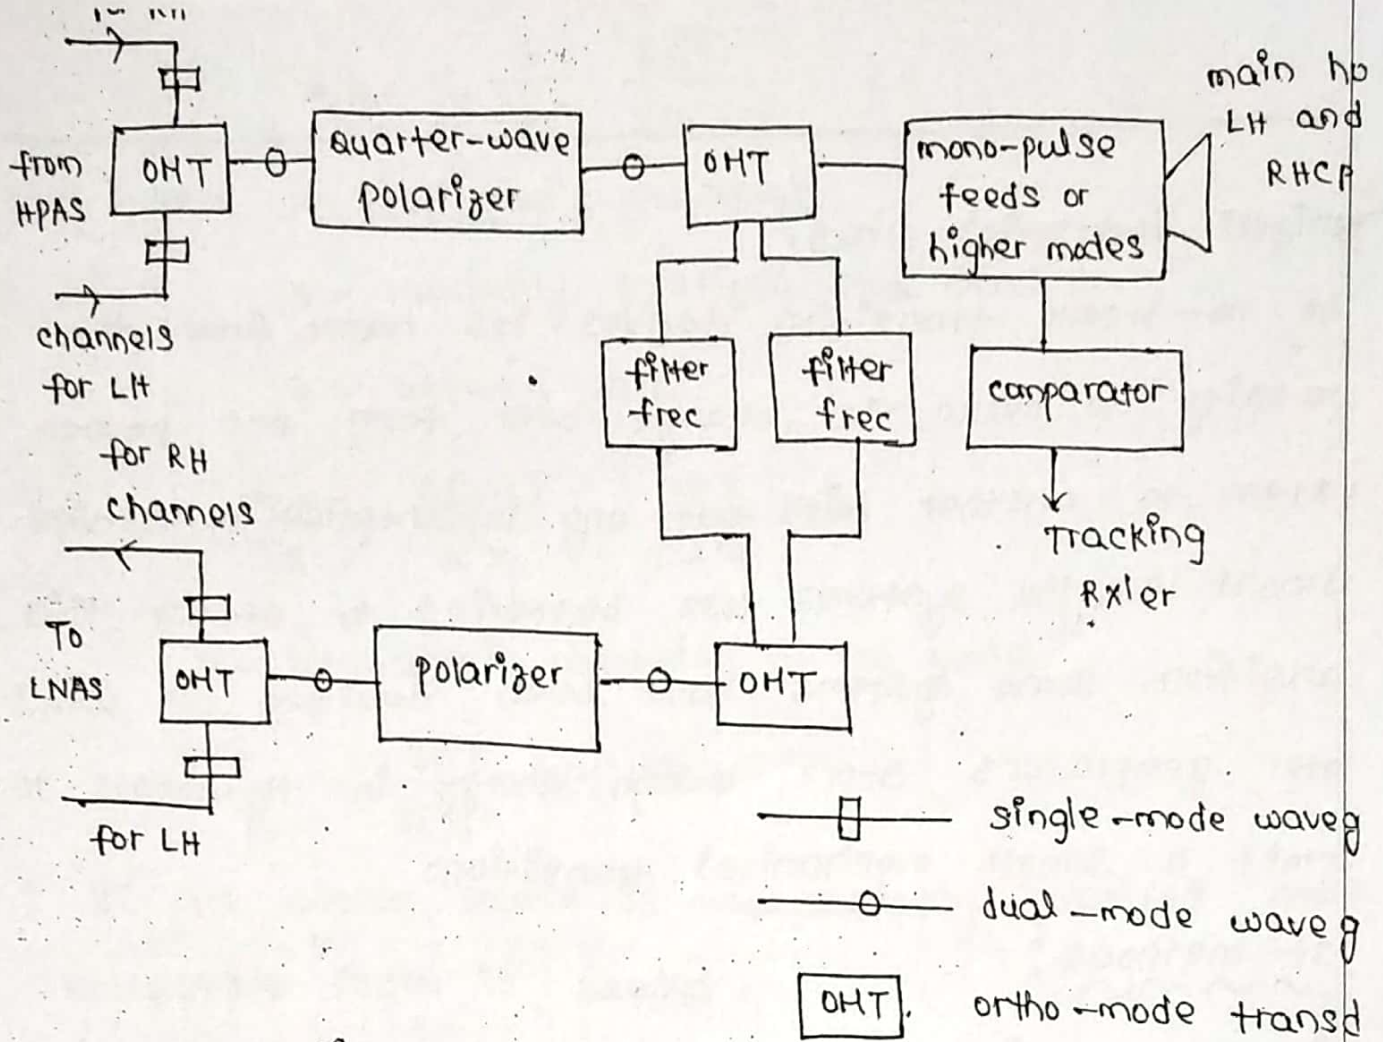 from
HPAS
OHT
quarter-wave
polarizer
OHT
mono-pulse
feeds or
higher modes
main ho
LH and
RHCP
channels
for LH
filter
frec
filter
frec
canparator
Tracking
Rx'er
for RH
channels
To
LNAS
OHT
polarizer
OHT
for LH
single-mode waveg
dual-mode waveg
OHT
ortho-mode transd